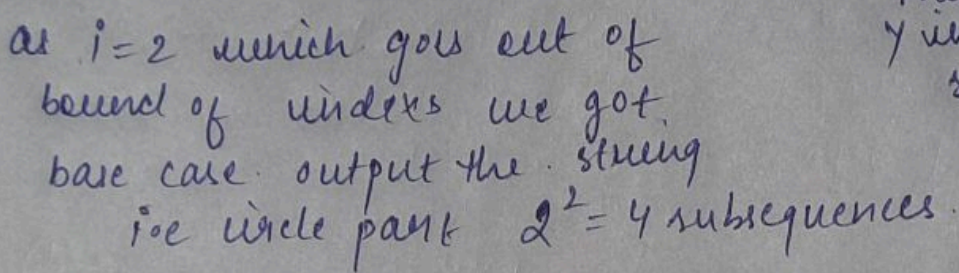 as i=2 which goes out of
bound of indexs we got
base case. output the string
i.e circle part 2² = 4 subsequences.